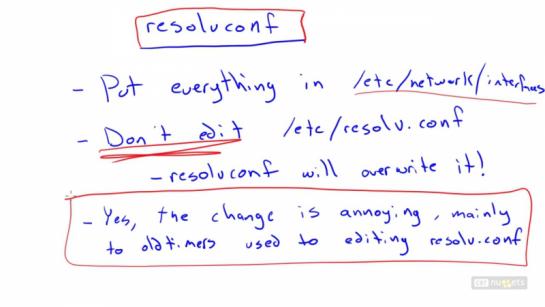 resolvconf
- Put everything in /etc/network/interfaces
- Don't edit /etc/resolv.conf
- resolvconf will overwrite it!
- Yes, the change is annoying, mainly
to oldtimers used to editing resolv.conf
cbt nuggets